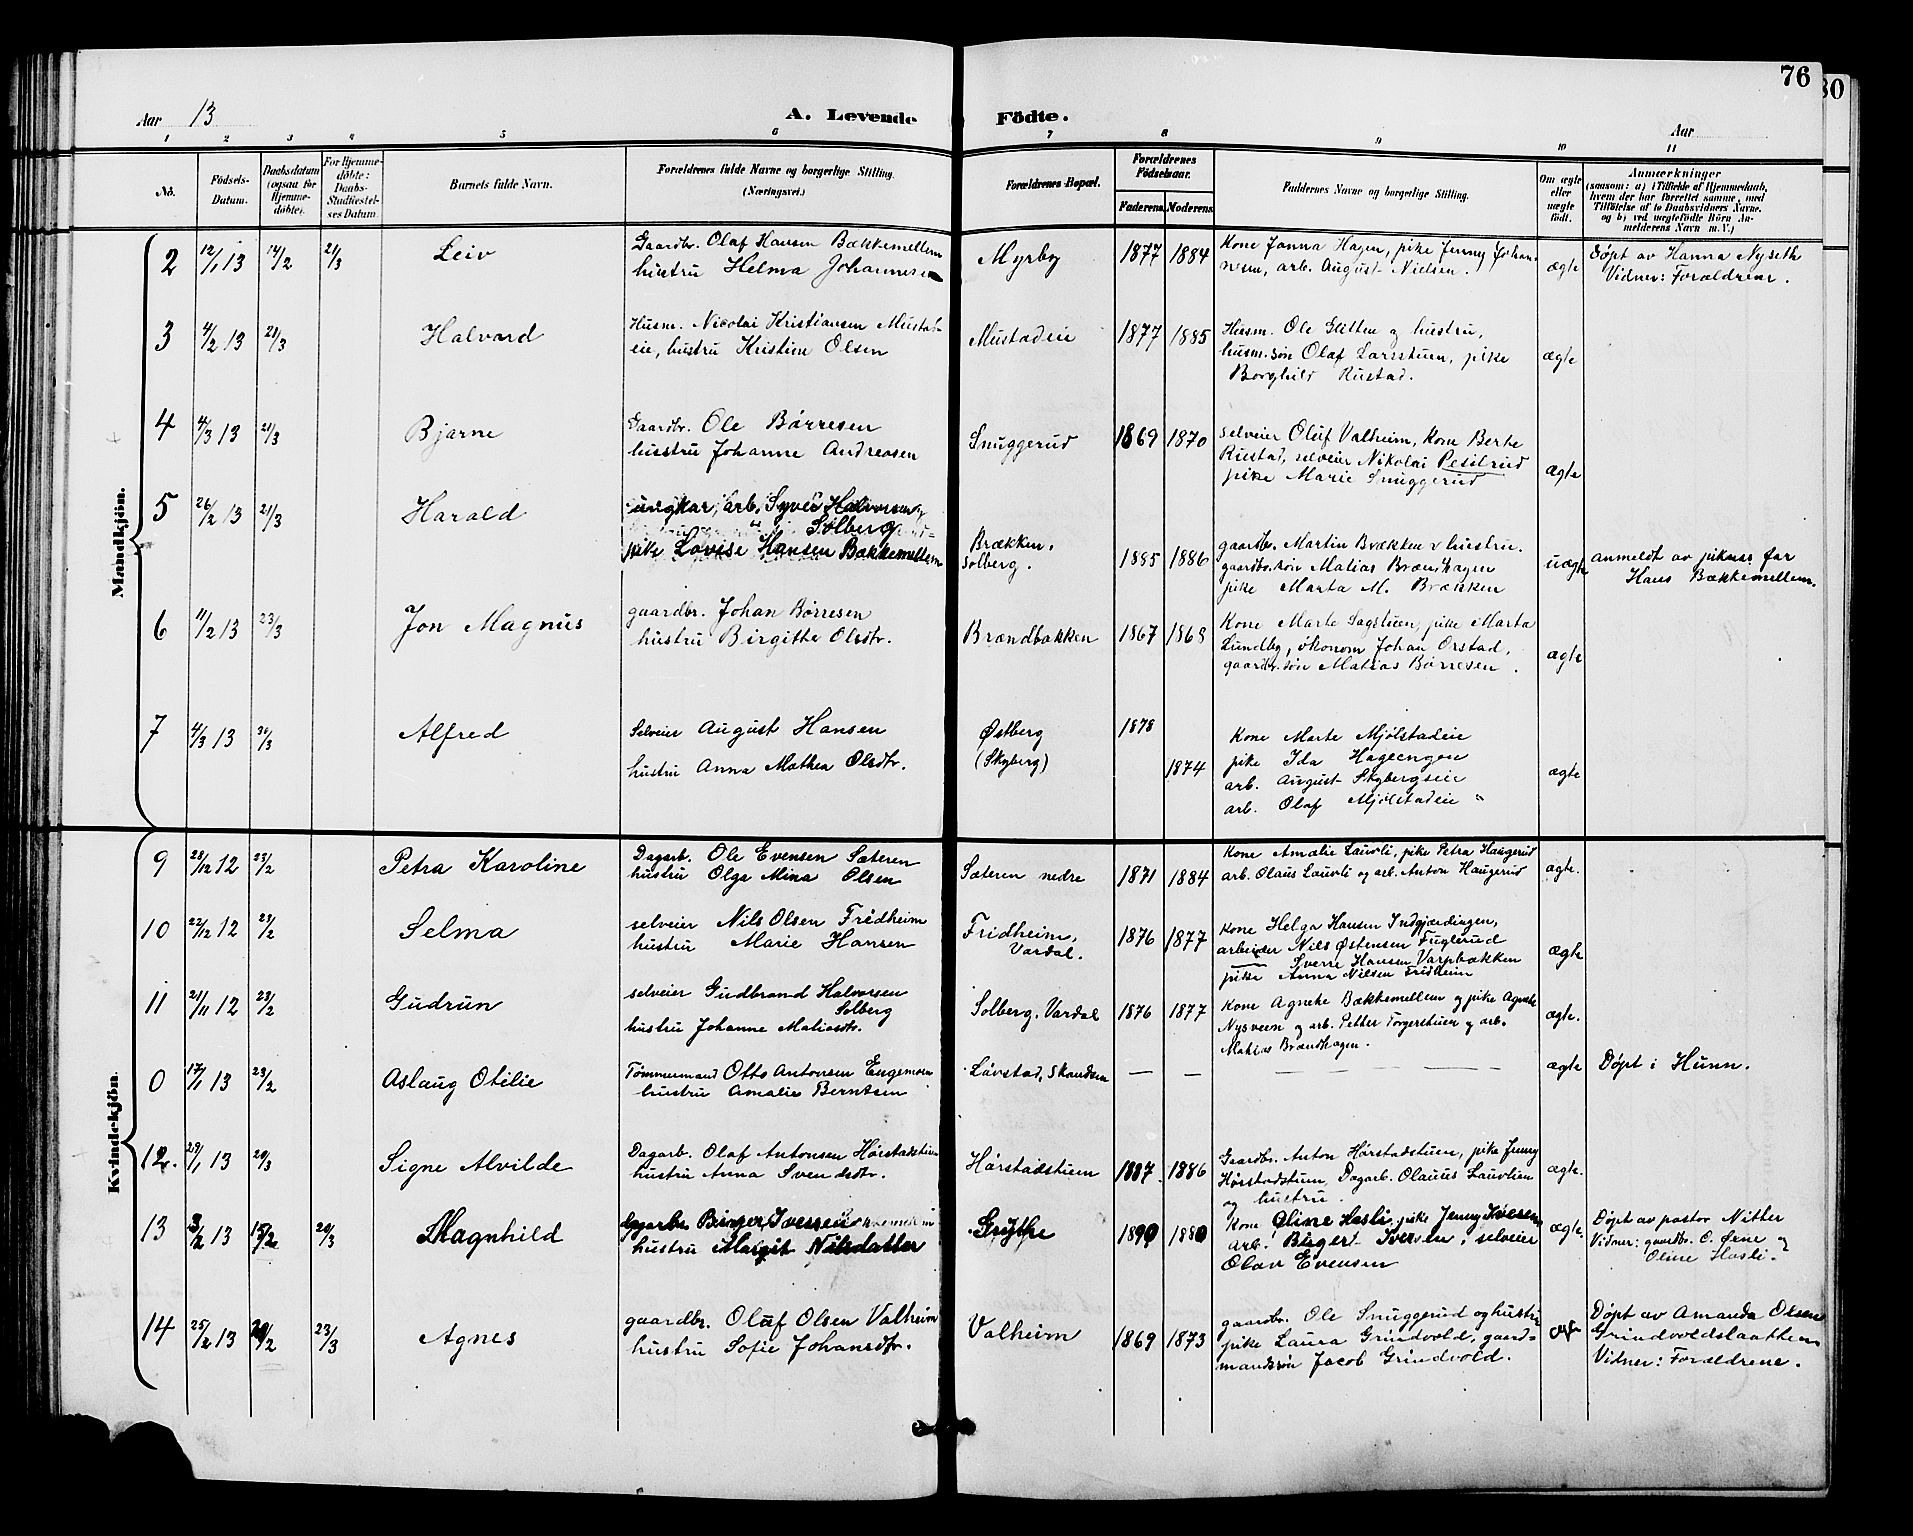 76
80
Aar 13
A. Levende Födte.
Aar
1 2 3 4 5 6 7 8 9 10 11
No.
Födsels-Datum.
Daabsdatum (ogsaa for Hjemme-döbte).
For Hjemme-döbte: Daabs-Stadfæstel-ses Datum
Barnets fulde Navn.
Forældrenes fulde Navne og borgerlige Stilling. (Næringsvei.)
Forældrenes Bopæl.
Forældrenes Födselsaar.
Faderens. Moderens.
Faddernes Navne og borgerlige Stilling.
Om ægte eller uægte födt.
Anmærkninger
(saasom: a) i Tilfælde af Hjemmedaab,
hvem der har forrettet samme, med
Tilföielse af to Daabsvidners Navne,
og b) ved uægtefödte Börn An-
melderens Navn m. V.)
Mandkjön.
2 12/1 13 14/2 21/3 Leiv
Gaardbr. Olaf Hansen Bækkemellem
hustru Helma Johannesen
Myrby 1877 1884
Kone Janna Hagen, pike Jenny Johan-
nesen, arb. August Nielsen.
ægte
Døpt av Hanna Nyseth
Vidner: Forældrene.
3 4/2 13 21/3 Halvard
Husm. Nicolai Kristiansen Mustad-
eie, hustru Kristine Olsen
Mustadeie 1877 1885
Husm. Ole Glitten og hustru,
husm.søn Olaf Larsstuen, pike
Borghild Rustad.
ægte
4 4/3 13 21/3 Bjarne
Gaardbr. Ole Børresen
hustru Johanne Andreasen
Snuggerud 1869 1870
selveier Oluf Valheim, Kone Berte
Rustad, selveier Nikolai Pesitrud
pike Marie Snuggerud
ægte
5 26/2 13 21/3 Harald
ungkar, arb. Syver Halvorsen
Solberg
pike Lovise Hansen Bækkemellem
Brækken,
Solberg. 1885 1886
gaardbr. Martin Brækken & hustru.
gaardbr.søn Matias Brændhagen
pike Marta M. Brækken
uægte
anmeldt av pikens far
Hans Bækkemellem.
6 11/2 13 23/3 Jon Magnus
gaardbr. Johan Børresen
hustru Birgitte Olsdtr.
Brændbakken 1867 1868
Kone Marte Sagstuen, pike Marta
Lundby, økonom Johan Orstad,
gaardbr.søn Matias Børresen.
ægte
7 4/3 13 30/3 Alfred
Selveier August Hansen
hustru Anna Mathea Olsdtr.
Østberg
(Skyberg) 1878
1874
Kone Marte Mjølstadeie
pike Ida Hageengen
arb. August Skybergseie
arb. Olaf Mjølstadeie "
ægte
Kvindekjön.
9 28/12 12 23/2 Petra Karoline
Dagarb. Ole Evensen Sæteren
hustru Olga Mina Olsen
Sæteren nedre 1871 1884
Kone Amalie Lauvli, pike Petra Haugerud
arb. Olaus Lauvli og arb. Anton Haugerud
ægte.
10 22/12 12 23/2 Selma
selveier Nils Olsen Fridheim
hustru Marie Hansen
Fridheim,
Vardal. 1876 1877
Kone Helga Hansen Indgjærdingen,
arbeider Nils Østensen Fuglerud
— Sverre Hansen Varpbakken
pike Anna Nilsen Fridheim
ægte
11 21/11 12 23/2 Gudrun
selveier Gudbrand Halvorsen
Solberg
hustru Johanne Matiasdtr.
Solberg, Vardal 1876 1877
Kone Agnethe Bækkemellem og pike Agnethe
Nysveen og arb. Petter Torgerstuen og arb.
Matias Brændhagen.
ægte.
0 17/1 13 23/2 Aslaug Otilie
Tømmermand Otto Antonsen Engemoen
hustru Amalie Berntsen
Løvstad, Skandsen — — — — — — —
ægte
Døpt i Hunn.
12. 29/1 13 20/3 Signe Alvilde
Dagarb. Olaf Antonsen Hørstadstuen
hustru Anna Svendsdtr.
Hørstadstuen 1887. 1886
Gaardbr. Anton Hørstadstuen, pike Jenny
Hørstadstuen, Dagarb. Olaus Lauvlien
og hustru.
ægte.
13 3/2 13 15/2 20/3 Magnhild
hustru Margit Nilsdatter
Grythe 1890 1880
Kone Oline Hasli, pike Jenny Iversen
arb. Birger Iversen, selveier
Olav Evensen
ægte.
Døpt av pastor Nitter
Vidner: gaardbr. O. Ørne og
Oline Hasli.
14 25/2 13 23/3 Agnes
gaardbr. Oluf Olsen Valheim
hustru Sofie Johansdtr.
Valheim 1869 1873
gaardbr. Ole Snuggerud og hustru
pike Laura Grindvold, gaard-
mandssøn Jacob Grindvold.
Døpt av Amanda Olsen
Grindvoldslaatten
Vidner: Forældrene.